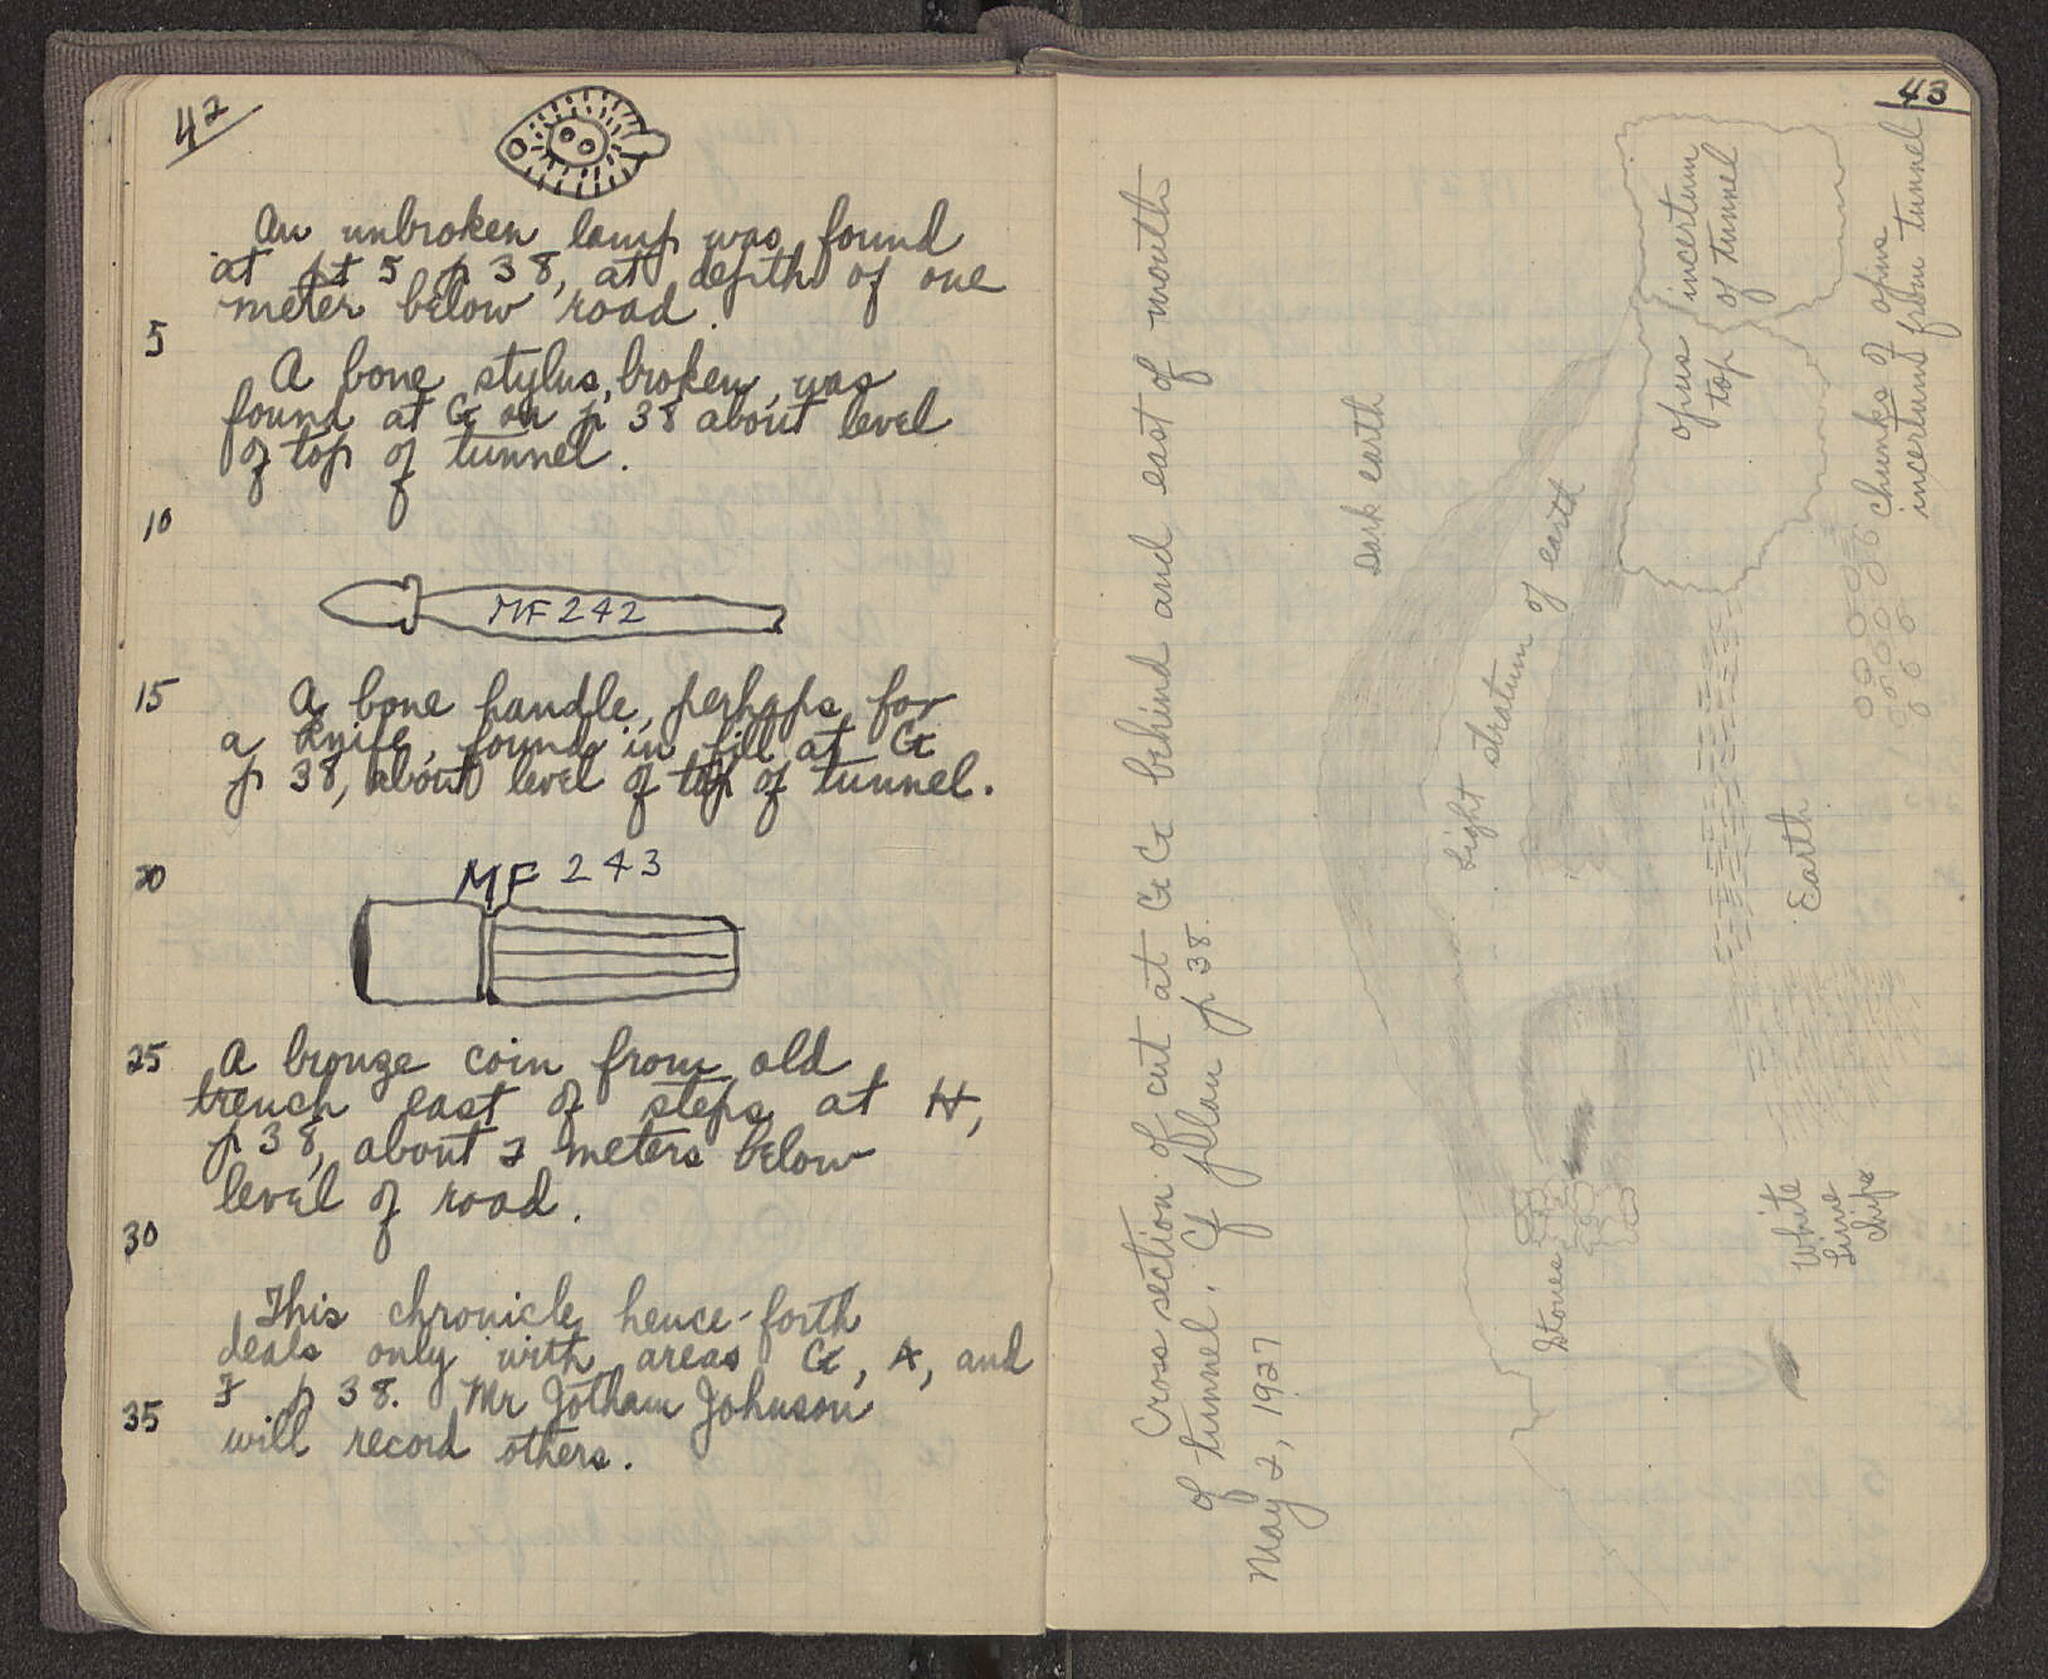 42
An unbroken lamp was found
at pt 5 p 38, at depth of one
meter below road.
5
A bone stylus, broken, was
found at G on p 38 about level
of top of tunnel.
10
MF 242
15
A bone handle, perhaps for
a knife, found in fill at G
p 38, about level of top of tunnel.
20
MF 243
25
A bronze coin from old
trench east of steps at H,
p 38, about 2 meters below
level of road.
30
This chronicle hence-forth
deals only with areas G, A, and
F p 38. Mr Jotham Johnson
35
will record others.
43
Cross section of cut at G G behind and east of mouth
of tunnel. Cf plan p 38.
May 2, 1927
Dark earth
Light stratum of earth
Stones
opus incertum
top of tunnel
Earth
White
Lime
chips
Chunks of opus
incertum from tunnel